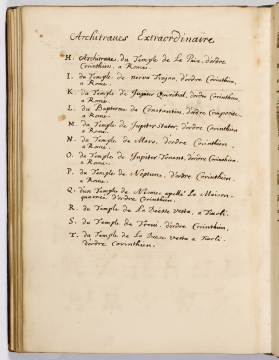 Architraves Extraordinaire
H. Architrave du Temple de La Paix, d'ordre
Corinthien, a Rome.
I. du Temple de nerva Trajan, d'ordre Corinthien,
a Rome.
K. du Temple de Jupiter Quirital, d'ordre Corinthien,
a Rome.
L. du Baptesme de Constantin, d'ordre composite,
a Rome.
M. du Temple de Jupiter Stator, d'ordre Corinthien,
a Rome.
N. du Temple de Mars, d'ordre Corinthien,
a Rome.
O. du Temple de Jupiter Tonant, d'ordre Corinthien,
a Rome.
P. du Temple de Neptune, d'ordre Corinthien,
a Rome.
Q. d'un Temple de Nismes, apellé La Maison
quarrée d'ordre Corinthien.
R. du Temple de La Déesse Vesta, a Tivoli.
S. du Temple de Trevi, d'ordre Corinthien,
T. du Temple de La Déesse Vesta a Tivoli,
d'ordre Corinthien.